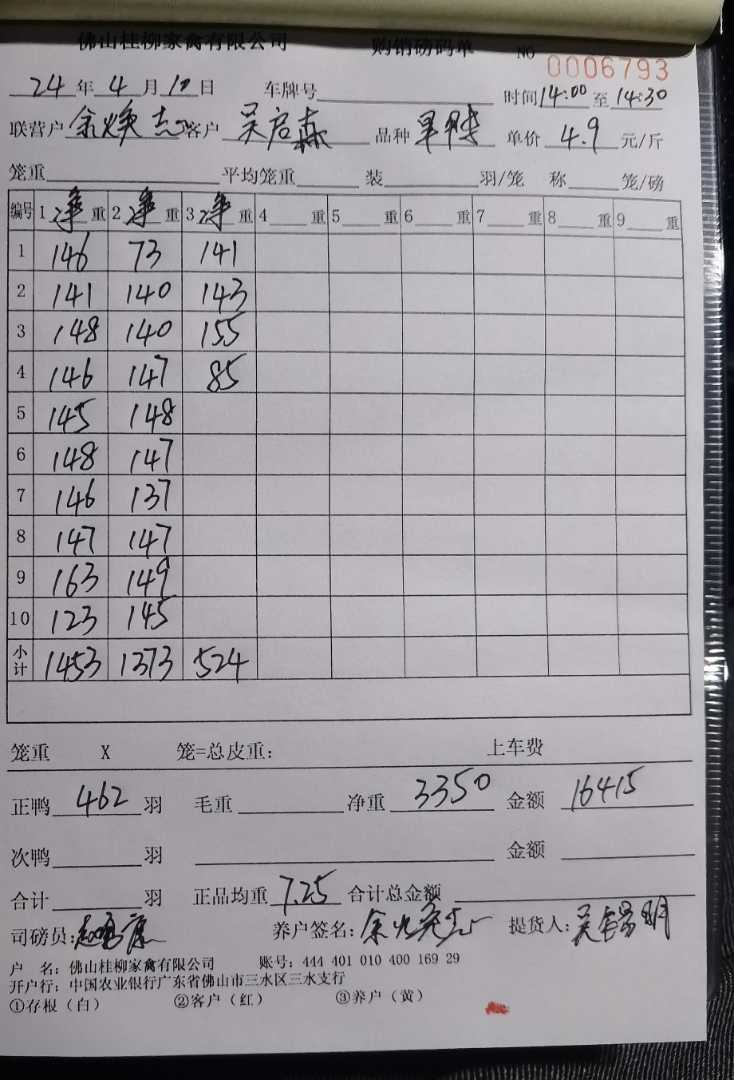 佛山桂柳家禽有限公司 购销磅码单 NO 0006793
24年4月10日 车牌号 时间14:00至14:30
联营户余焕志客户吴启森 品种 单价4.9元/斤
笼重 平均笼重 装 羽/笼 称 笼/磅
编号 1净重 2净重 3净重 4 重 5 重 6 重 7 重 8 重 9 重
1 146 73 141
2 141 140 143
3 148 140 155
4 146 147 85
5 145 148
6 148 147
7 146 137
8 147 147
9 163 149
10 123 145
小计 1453 1373 524
笼重 X 笼=总皮重: 上车费
正鸭462羽 毛重 净重3350 金额16415
次鸭 羽 金额
合计 羽 正品均重7.25 合计总金额
司磅员: 养户签名:余焕志 提货人:
户 名:佛山桂柳家禽有限公司 账号:444 401 010 400 169 29
开户行:中国农业银行广东省佛山市三水区三水支行
①存根(白) ②客户(红) ③养户(黄)